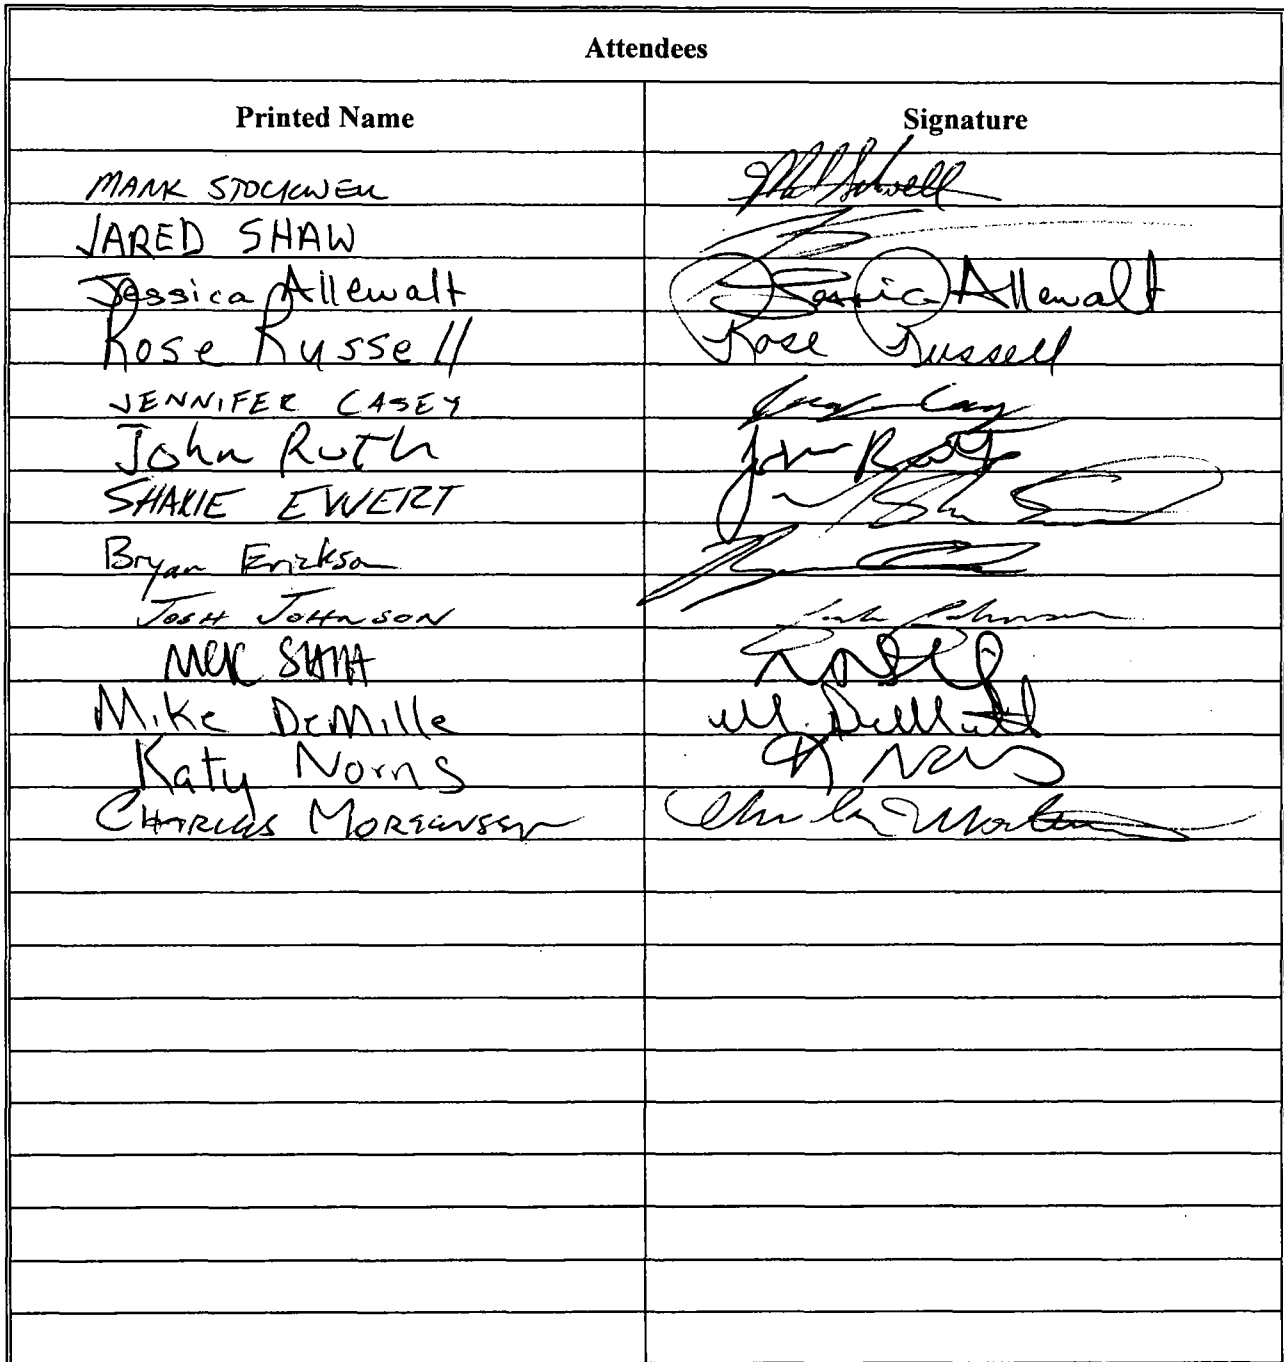 Attendees
Printed Name Signature
MARK STOCKWELL
JARED SHAW
Jessica Allewalt Jessica Allewalt
Rose Russell Rose Russell
JENNIFER CASEY
John Ruth John Ruth
EWERT
Bryan Erickson
JOSH JOHNSON Josh Johnson
Mike DeMille M. DeMille
Katy Norris K Norris
CHARLES MORTENSEN